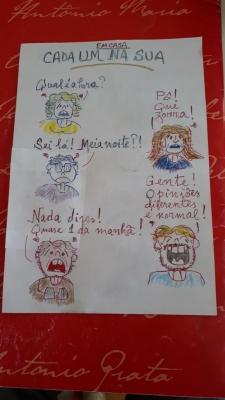 Antônio Maria
EM CASA
CADA UM NA SUA
Qual é a hora?
Pô!
Que
zorra!
Sei lá! Meia noite?!
Gente!
Opiniões
diferentes
é normal!
Nada dizes!
Quase 1 da manhã!
Antonio Prata